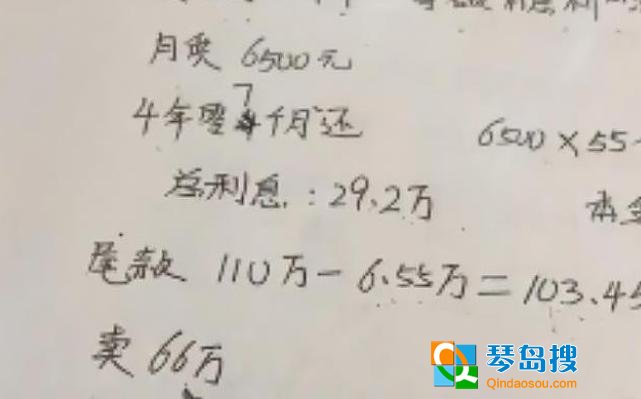 月供 6500元
4年零7个月还 6500×55
总利息：29.2万 本金
尾款 110万-6.55万=103.45
卖66万
琴岛搜
Qindaosou.com